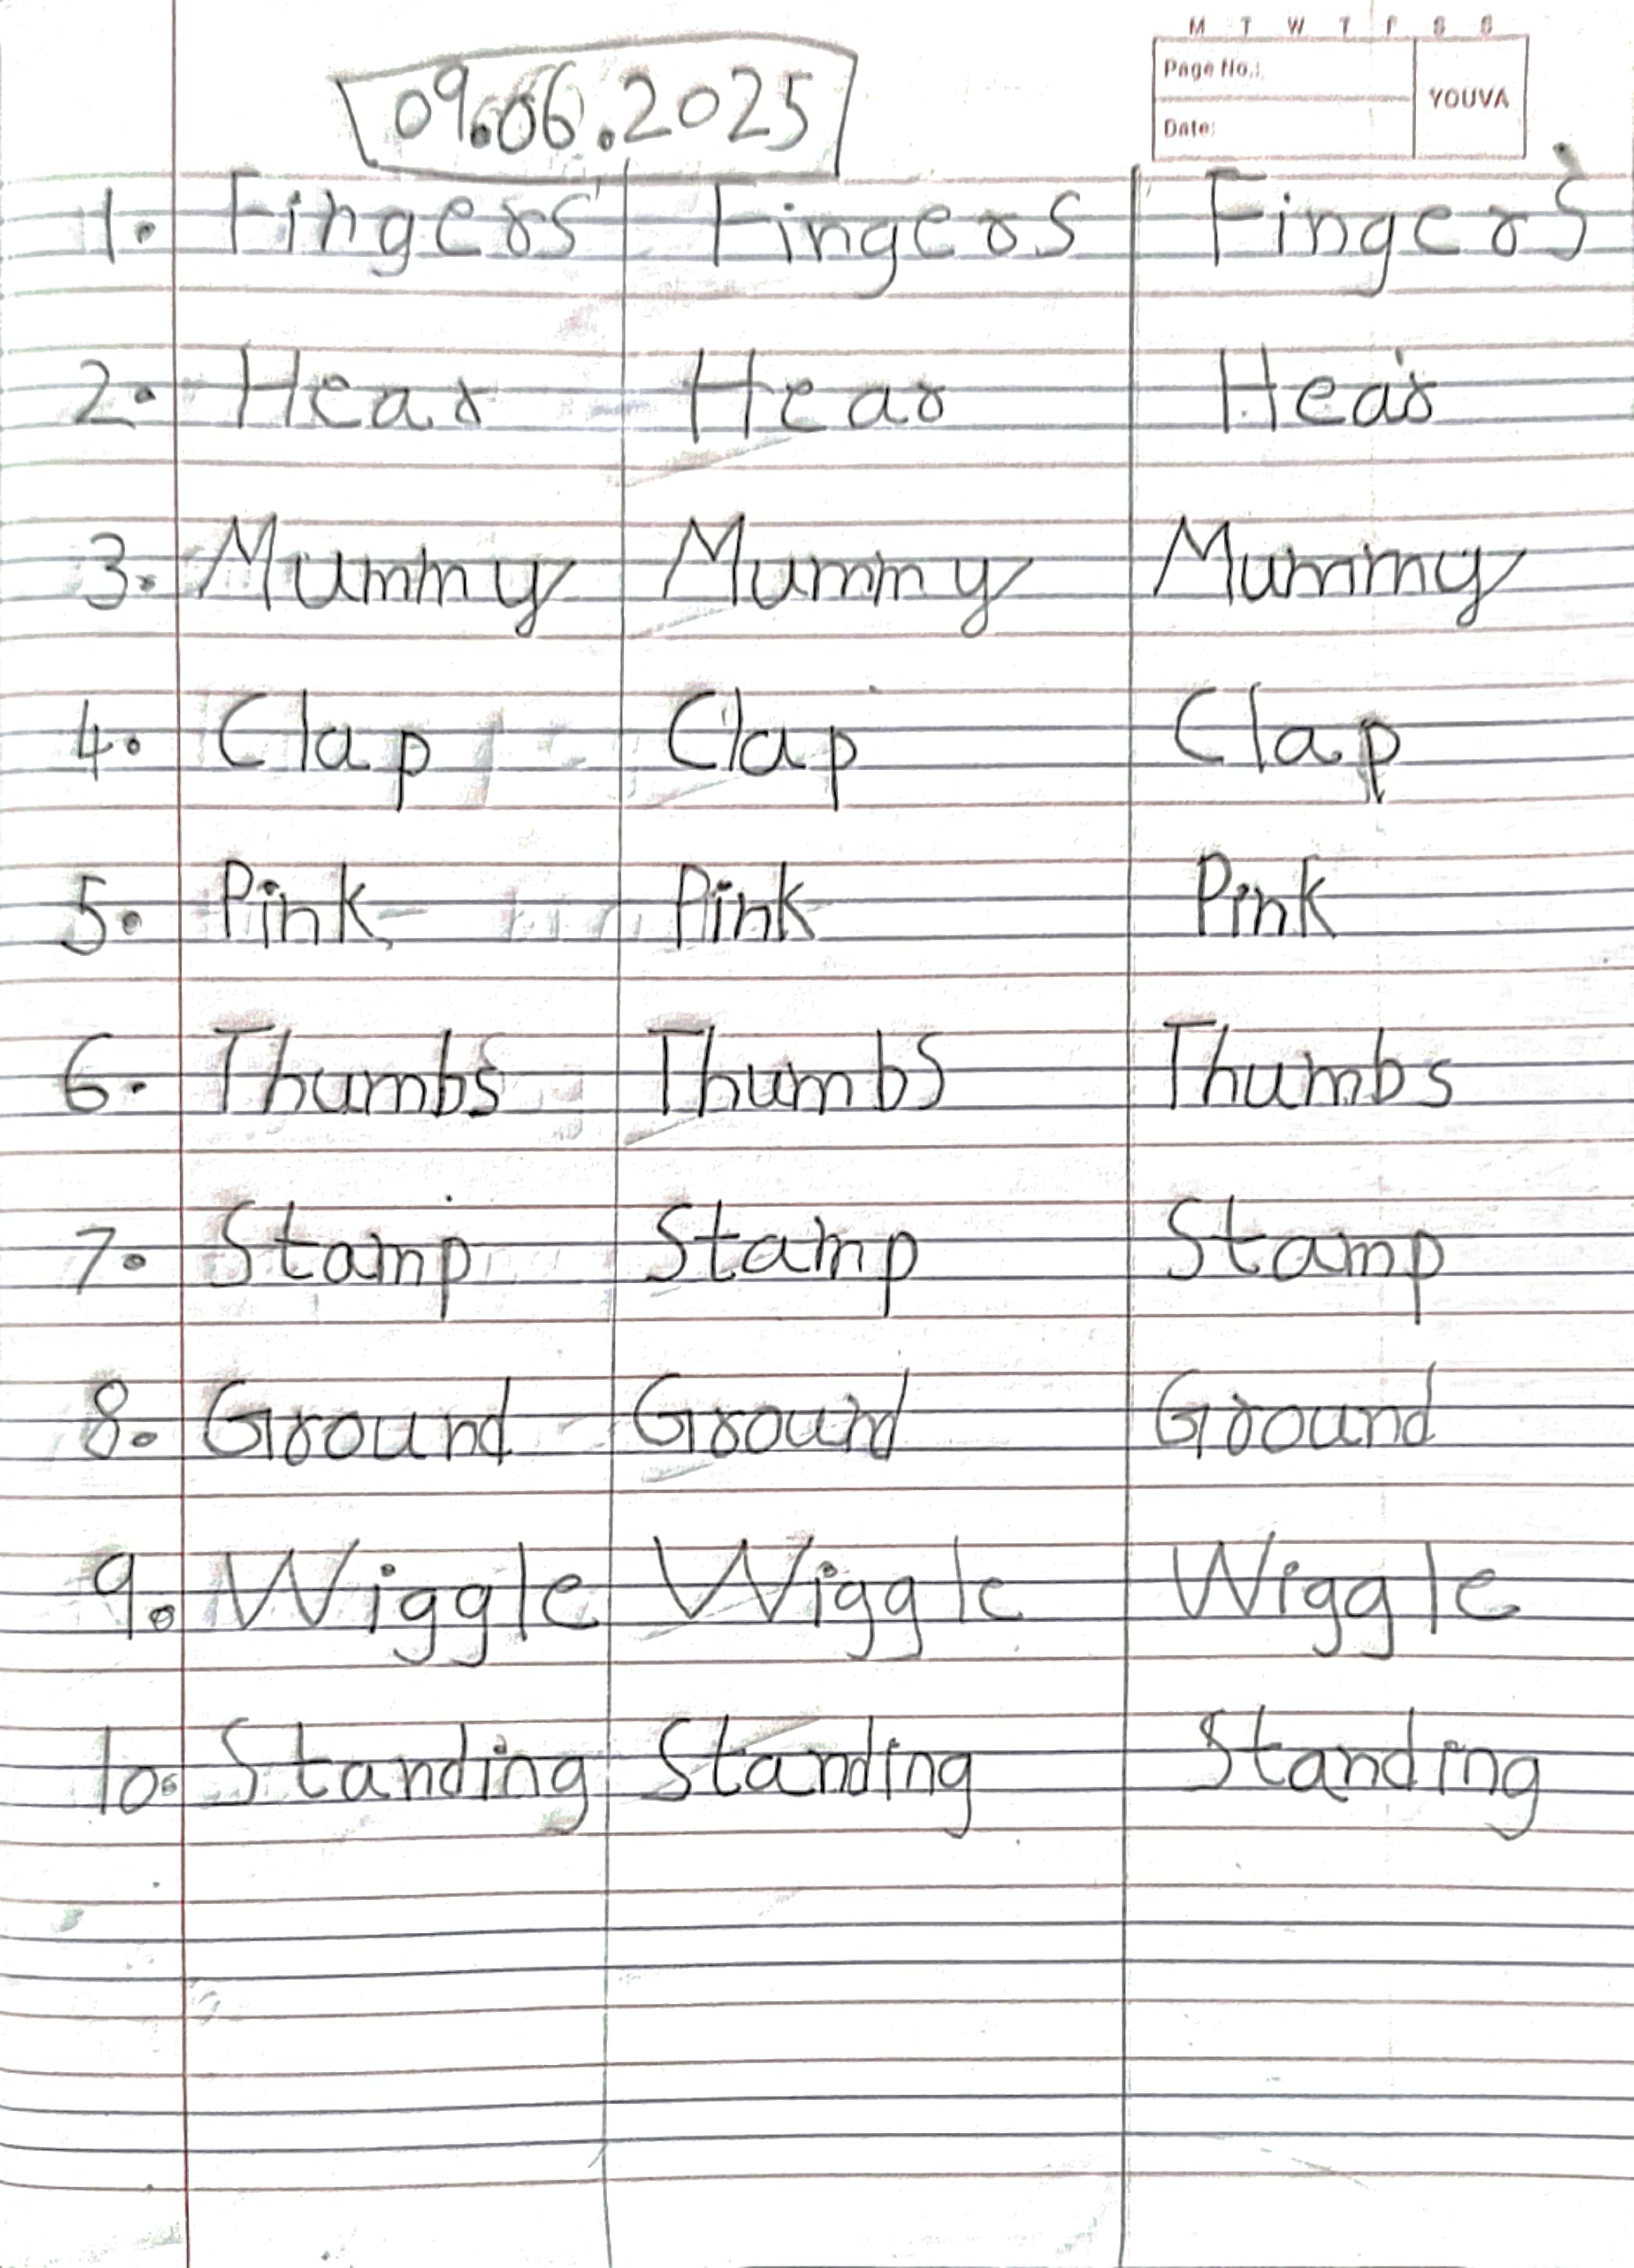 M T W T F S S
Page No.:
YOUVA
Date:
09.06.2025
1. Fingers Fingers Fingers
2. Hear Hear Hear
3. Mummy Mummy Mummy
4. Clap Clap Clap
5. Pink Pink Pink
6. Thumbs Thumbs Thumbs
7. Stamp Stamp Stamp
8. Ground Ground Ground
9. Wiggle Wiggle Wiggle
10. Standing Standing Standing